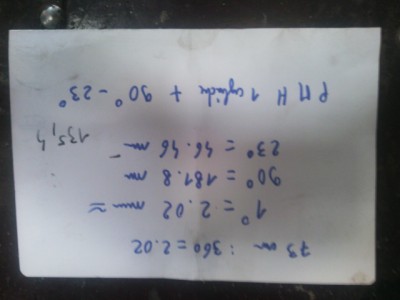 73 cm : 360 = 2.02
1° = 2.02 mm ≈
90° = 181.8 mm
23° = 46.46 mm –
135,4
PMH 1 cylindre + 90° - 23°